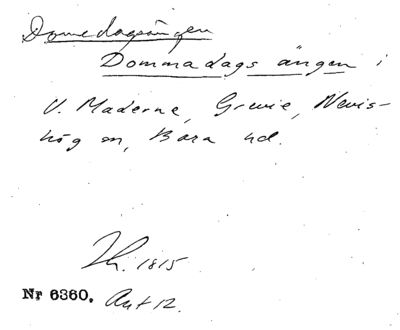 Domedagsängen
Dommadags ängen i
V. Maderne, Grevie, Nevis-
hög sn, Bara hd.
1815
Nr 6360. Ant 12.